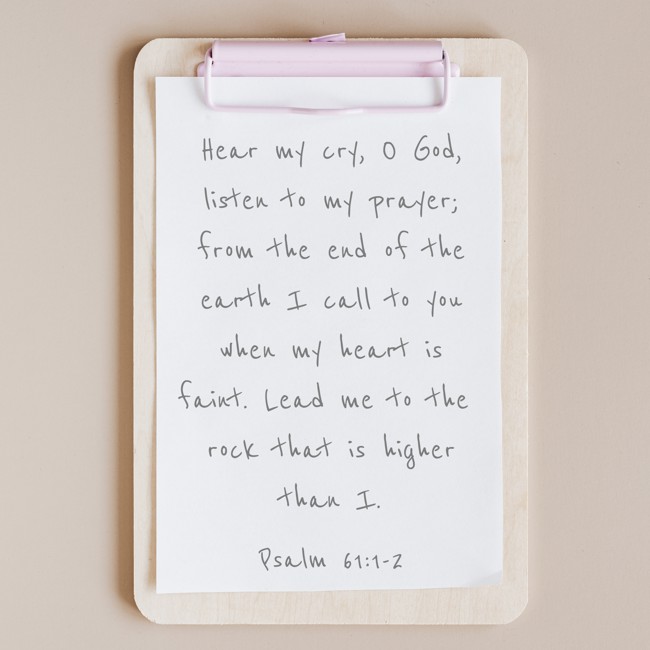 Hear my cry, O God,
listen to my prayer;
from the end of the
earth I call to you
when my heart is
faint. Lead me to the
rock that is higher
than I.
Psalm 61:1-2